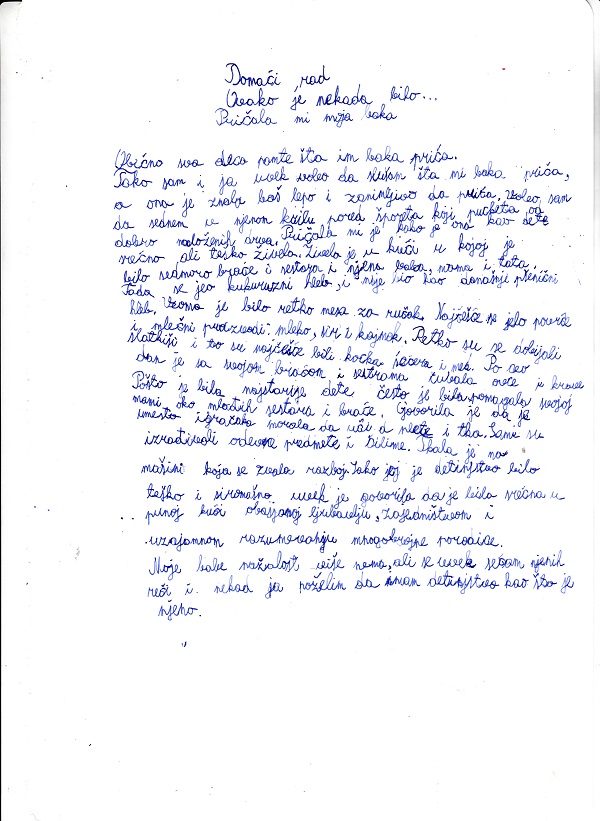 Domaći rad
Ovako je nekada bilo...
Pričala mi moja baka
Obično sva deca pamte šta im baka priča.
Tako sam i ja uvek voleo da slušam šta mi baka priča,
a ona je znala baš lepo i zanimljivo da priča. Voleo sam
da sednem u njenom krilu pored šporeta koji pucketa od
dobro naloženih drva. Pričala mi je kako je ona kao dete
srećno ali teško živela. Živela je u kući u kojoj je
bilo sedmoro braće i sestara i njena baba, mama i tata.
Tada se jeo kukuruzni hleb, i nije bio kao današnji pšenični
hleb. Veoma je bilo retko mesa za ručak. Najčešće se jelo povrće
i mlečni proizvodi: mleko, sir i kajmak. Retko su se dobijali
slatkiši i to su najčešće bili kocka šećera i med. Po ceo
dan je sa svojom braćom i sestrama čuvala ovce i krave
Pošto je bila najstarije dete često je bila pomagala svojoj
mami oko mlađih sestara i braće. Govorila je da je
umesto igračaka morala da uči d plete i tka. Sami su
izrađivali odevne predmete i ćilime. Tkala je na
mašini koja se zvala razboj. Iako joj je detinjstvo bilo
teško i siromašno uvek je govorila da je bila srećna u
punoj kući obasjanoj ljubavlju, zajedništvom i
uzajamnom razumevanju mnogobrojne porodice.
Moje babe nažalost više nema, ali se uvek sećam njenih
reči i nekad ja poželim da imam detinjstvo kao što je
njeno.